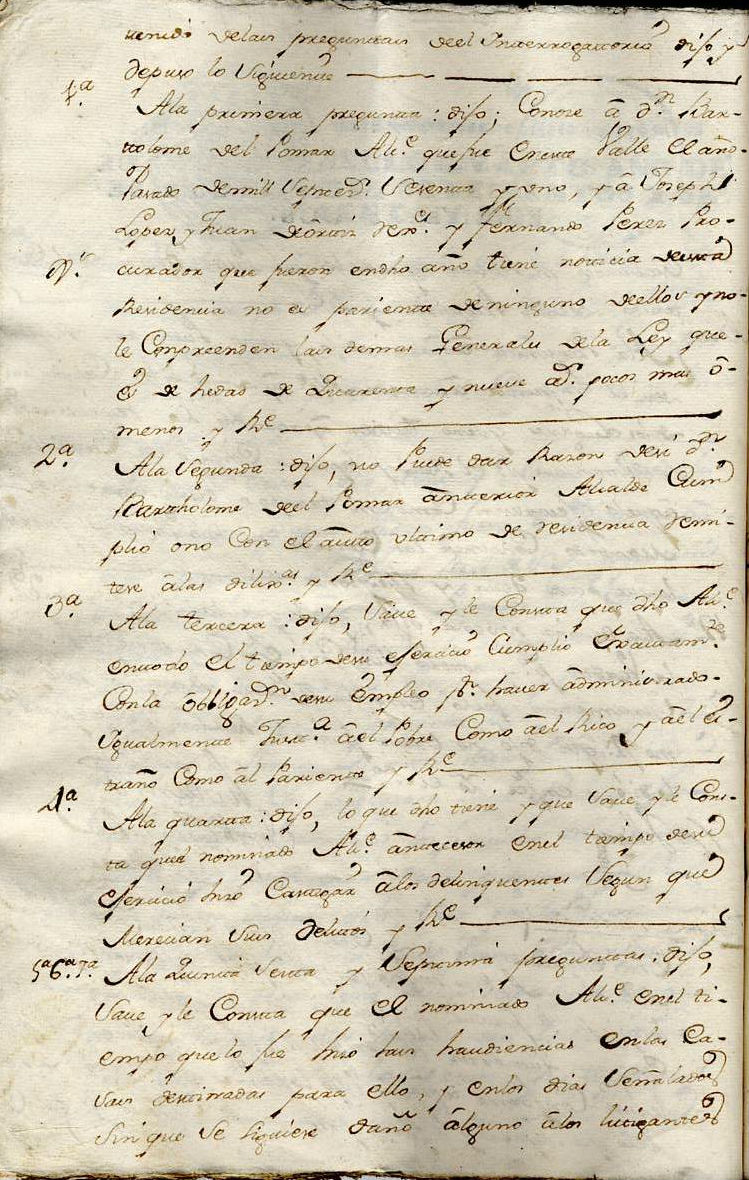 tenido delas preguntas deel Interrogatorio dijo y
depuso lo siguiente
1ª Ala primera pregunta: dijo; Conose â dn. Bar-
tolome del Pomar Alce. que fue Enesta Valle El año-
Pasado demill Setecs. Sesenta y uno, y â Joseph
Lopez y Juan deôrtiz and Fernando Perez Pro-
curador que fueron endho año tiene noticia deesta
Residencia no es pariente deninguno deellos y no-
le Conpreenden las demas Generales de la Ley que-
es de hedad de Quarenta y nueve as. pocos mas ô-
menos y Re
2ª Ala Segunda: dijo, no Puede dar Razon desi dn.
Bartholome deel Pomar ânterior Alcalde Cum-
plio ono Con el aucto ultimo de residencia remi-
tese âlas dilixas. y Re
3ª Ala tercera: dijo, Save y le Consta que dho Alce.
entodo el tiempo desu Esercicio Cumplio Exactamte.
Conla ôbligasn. desu Empleo pr. haver âdministrado-
Ygualmente Justa. âel Pobre Como âel Rico y âel Es-
traño Como âl Pariente y Re
4ª Ala quarta: dijo, lo que dho tiene y que Save y le Cons-
ta quel nominado Alce. ântecesor enel tiempo desu
Esercicio hizo Castigar âlos delinquentes Segun que
Merecian sus delictos y Re
5ª 6ª 7ª Ala Quinta Sesta y Septima preguntas: dijo,
Save y le Consta que El nominado Alce. enel ti-
empo que lo fue hizo las haudiencias enlas Ca-
sas destinadas para ello, y enlos dias Señalados
Sin que se siguiese daño âlguno âlos litigantes